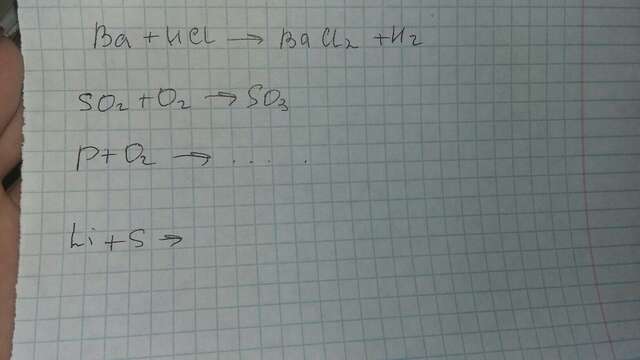 Ba + HCl → BaCl₂ + H₂
SO₂ + O₂ → SO₃
P + O₂ → . . . . .
Li + S →